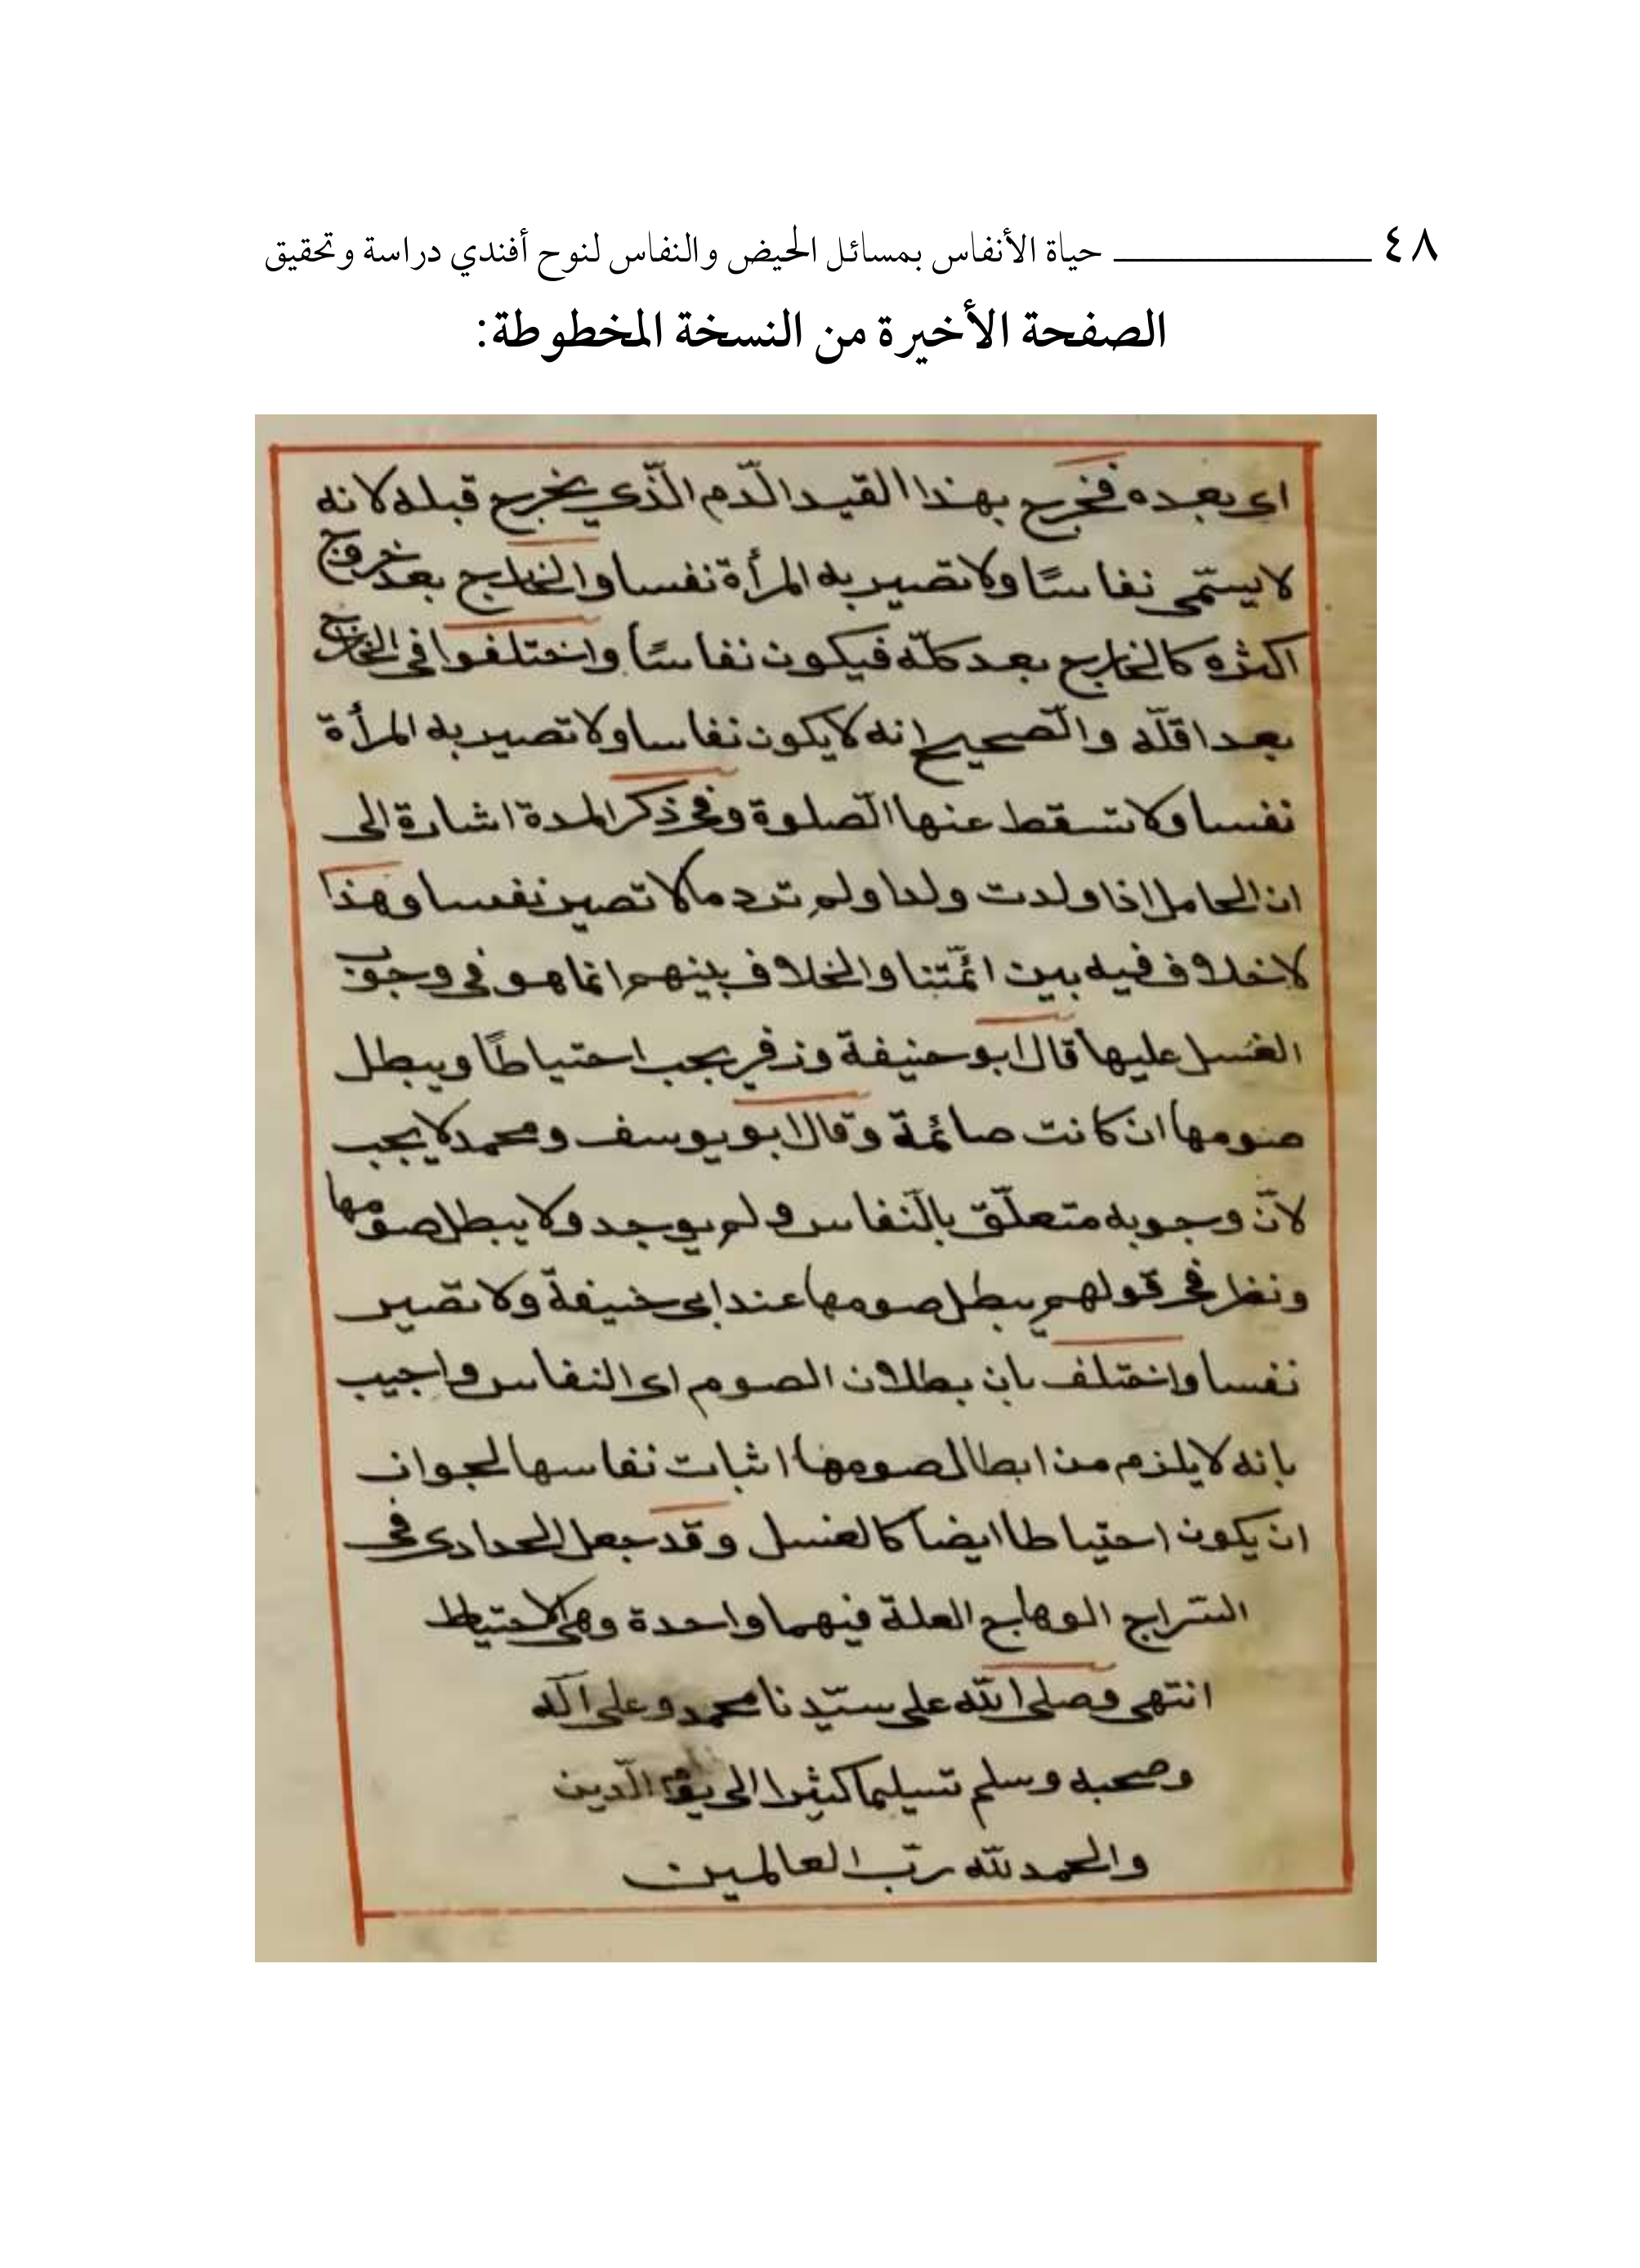 ٤٨ حياة الأنفاس بمسائل الحيض والنفاس لنوح أفندي دراسة وتحقيق
الصفحة الأخيرة من النسخة المخطوطة:
اى بعده فخرج بهذا القيد الدّم الّذي يخرج قبله لانه
لا يسمّى نفاسًا ولا تصير به المرأة نفسا والخارج بعد خروج
اكثره كالخارج بعد كلّه فيكون نفاسًا واختلفوا في الخارج
بعد اقلّه والصّحيح انه لا يكون نفاسا ولا تصير به المرأة
نفسا ولا تسقط عنها الصّلوة وفي ذكر المدة اشارة الى
ان الحامل اذا ولدت ولدا ولم تر دما لا تصير نفسا وهذا
لا خلاف فيه بين ائمّتنا والخلاف بينهم انما هو في وجوب
الغسل عليها قال ابو حنيفة وزفر يجب احتياطًا ويبطل
صومها ان كانت صائمة وقال ابو يوسف ومحمد لا يجب
لانّ وجوبه متعلّق بالنّفاس ولم يوجد ولا يبطل صومها
ونظر في قولهم يبطل صومها عند ابى حنيفة ولا تصير
نفسا واختلف بان بطلان الصوم اى النفاس واجيب
بانه لا يلزم من ابطال صومها اثبات نفاسها لجواز
ان يكون احتياطا ايضا كالغسل وقد جعل الحدادى في
السّراج الوهاج العلة فيهما واحدة وهى الاحتياط
انتهى وصلى الله على سيّدنا محمد وعلى آله
وصحبه وسلم تسليما كثيرا الى يوم الدّين
والحمد لله ربّ العالمين